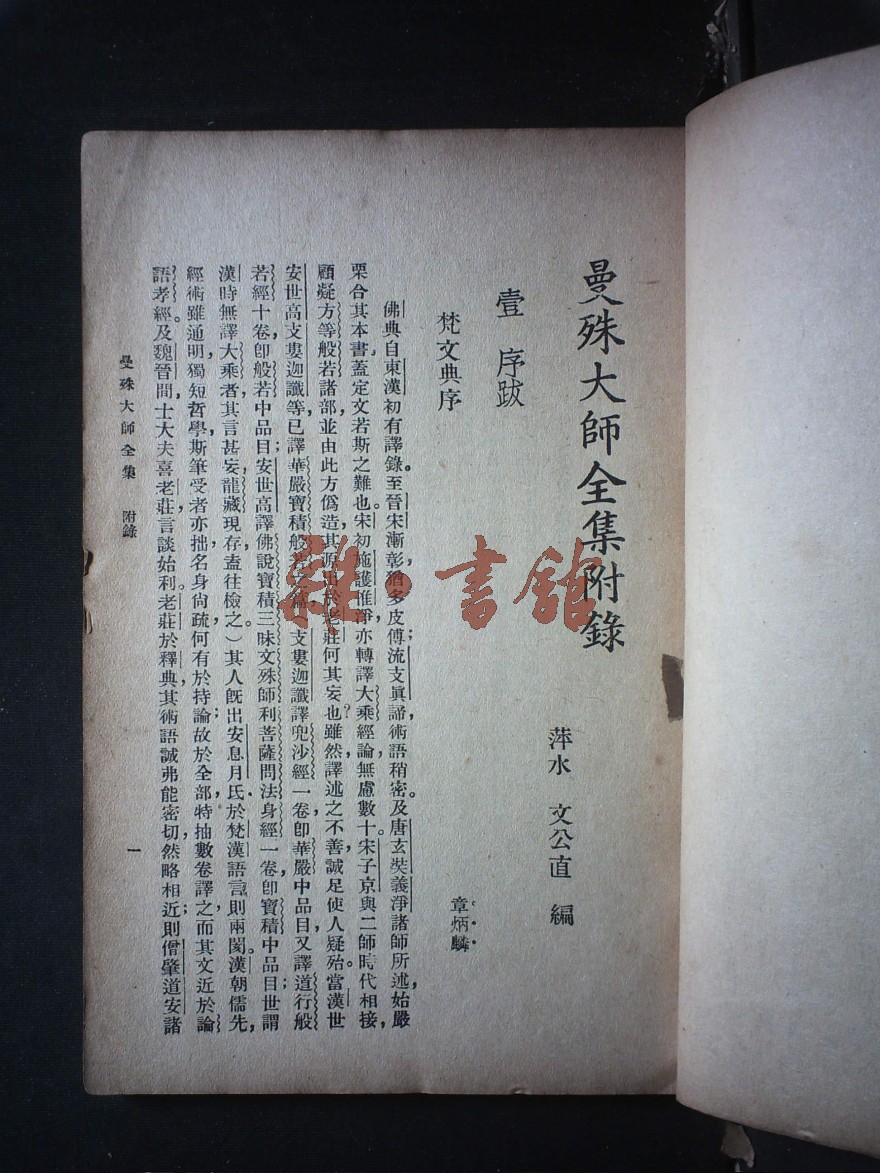 曼殊大師全集附錄
萍水 文公直 編
壹 序跋
梵文典序
章炳麟
佛典自東漢初有譯錄。至晉宋漸彰，猶多皮傅；流支眞諦，術語稍密。及唐玄奘義淨諸師所述，始嚴
栗合其本書，蓋定文若斯之難也。宋初施護惟淨，亦轉譯大乘經論，無慮數十。宋子京與二師時代相接，
顧疑方等般若諸部，並由此方僞造，其源出於老莊，何其妄也？雖然，譯述之不善，誠足使人疑殆。當漢世
安世高支婁迦讖等，已譯華嚴寶積般若之篇，（支婁迦讖譯兜沙經一卷，卽華嚴中品目，又譯道行般
若經十卷，卽般若中品目；安世高譯佛說寶積三昧文殊師利菩薩問法身經一卷，卽寶積中品目；世謂
漢時無譯大乘者，其言甚妄，龍藏現存，盍往檢之。）其人旣出安息月氏，於梵漢語言，則兩閡。漢朝儒先，
經術雖通明，獨短哲學，斯筆受者亦拙，名身尙疏，何有於持論；故於全部特抽數卷譯之，而其文近於論
語孝經。及魏晉間，士大夫喜老莊言，談始利，老莊於釋典，其術語誠弗能密切，然略相近；則僧肇道安諸
曼殊大師全集 附錄
一
雜·書館